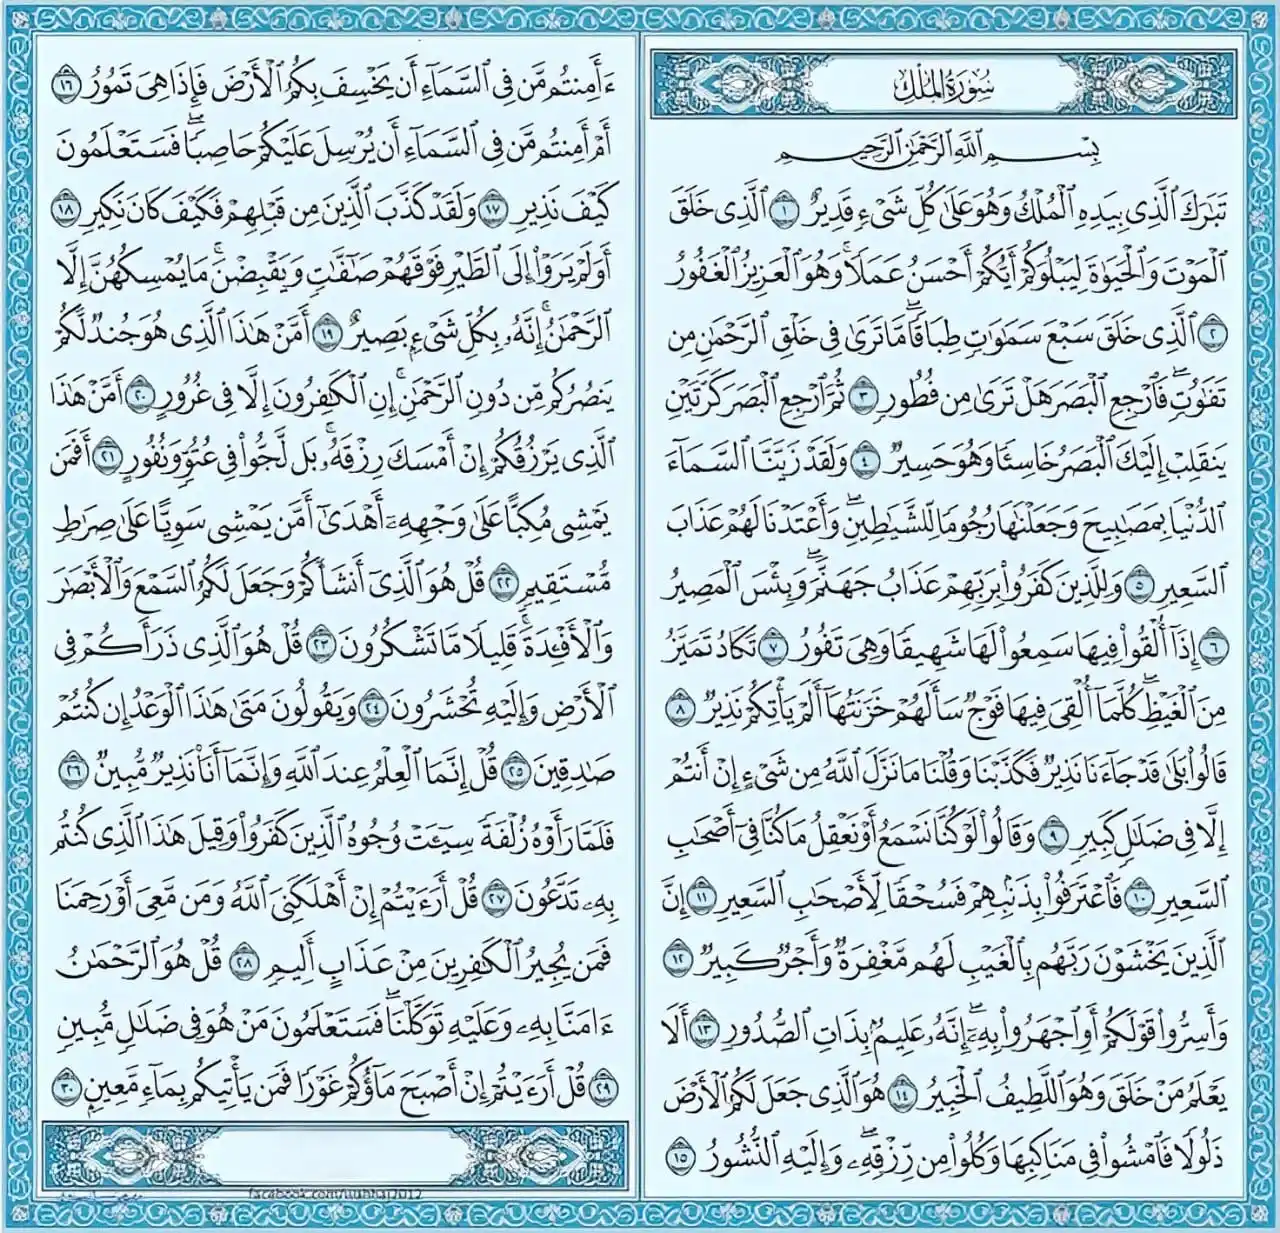 سُورَةُ الْمُلْكِ
بِسْمِ اللَّهِ الرَّحْمَٰنِ الرَّحِيمِ
تَبَٰرَكَ ٱلَّذِى بِيَدِهِ ٱلْمُلْكُ وَهُوَ عَلَىٰ كُلِّ شَىْءٍ قَدِيرٌ ١ ٱلَّذِى خَلَقَ
ٱلْمَوْتَ وَٱلْحَيَوٰةَ لِيَبْلُوَكُمْ أَيُّكُمْ أَحْسَنُ عَمَلًا ۚ وَهُوَ ٱلْعَزِيزُ ٱلْغَفُورُ
٢ ٱلَّذِى خَلَقَ سَبْعَ سَمَٰوَٰتٍ طِبَاقًا ۖ مَّا تَرَىٰ فِى خَلْقِ ٱلرَّحْمَٰنِ مِن
تَفَٰوُتٍ ۖ فَٱرْجِعِ ٱلْبَصَرَ هَلْ تَرَىٰ مِن فُطُورٍ ٣ ثُمَّ ٱرْجِعِ ٱلْبَصَرَ كَرَّتَيْنِ
يَنقَلِبْ إِلَيْكَ ٱلْبَصَرُ خَاسِئًا وَهُوَ حَسِيرٌ ٤ وَلَقَدْ زَيَّنَّا ٱلسَّمَآءَ
ٱلدُّنْيَا بِمَصَٰبِيحَ وَجَعَلْنَٰهَا رُجُومًا لِّلشَّيَٰطِينِ ۖ وَأَعْتَدْنَا لَهُمْ عَذَابَ
ٱلسَّعِيرِ ٥ وَلِلَّذِينَ كَفَرُوا۟ بِرَبِّهِمْ عَذَابُ جَهَنَّمَ ۖ وَبِئْسَ ٱلْمَصِيرُ
٦ إِذَآ أُلْقُوا۟ فِيهَا سَمِعُوا۟ لَهَا شَهِيقًا وَهِىَ تَفُورُ ٧ تَكَادُ تَمَيَّزُ
مِنَ ٱلْغَيْظِ ۖ كُلَّمَآ أُلْقِىَ فِيهَا فَوْجٌ سَأَلَهُمْ خَزَنَتُهَآ أَلَمْ يَأْتِكُمْ نَذِيرٌ ٨
قَالُوا۟ بَلَىٰ قَدْ جَآءَنَا نَذِيرٌ فَكَذَّبْنَا وَقُلْنَا مَا نَزَّلَ ٱللَّهُ مِن شَىْءٍ إِنْ أَنتُمْ
إِلَّا فِى ضَلَٰلٍ كَبِيرٍ ٩ وَقَالُوا۟ لَوْ كُنَّا نَسْمَعُ أَوْ نَعْقِلُ مَا كُنَّا فِىٓ أَصْحَٰبِ
ٱلسَّعِيرِ ١٠ فَٱعْتَرَفُوا۟ بِذَنۢبِهِمْ فَسُحْقًا لِّأَصْحَٰبِ ٱلسَّعِيرِ ١١ إِنَّ
ٱلَّذِينَ يَخْشَوْنَ رَبَّهُم بِٱلْغَيْبِ لَهُم مَّغْفِرَةٌ وَأَجْرٌ كَبِيرٌ ١٢
وَأَسِرُّوا۟ قَوْلَكُمْ أَوِ ٱجْهَرُوا۟ بِهِۦٓ ۖ إِنَّهُۥ عَلِيمٌۢ بِذَاتِ ٱلصُّدُورِ ١٣ أَلَا
يَعْلَمُ مَنْ خَلَقَ وَهُوَ ٱللَّطِيفُ ٱلْخَبِيرُ ١٤ هُوَ ٱلَّذِى جَعَلَ لَكُمُ ٱلْأَرْضَ
ذَلُولًا فَٱمْشُوا۟ فِى مَنَاكِبِهَا وَكُلُوا۟ مِن رِّزْقِهِۦ ۖ وَإِلَيْهِ ٱلنُّشُورُ ١٥
ءَأَمِنتُم مَّن فِى ٱلسَّمَآءِ أَن يَخْسِفَ بِكُمُ ٱلْأَرْضَ فَإِذَا هِىَ تَمُورُ ١٦
أَمْ أَمِنتُم مَّن فِى ٱلسَّمَآءِ أَن يُرْسِلَ عَلَيْكُمْ حَاصِبًا ۖ فَسَتَعْلَمُونَ
كَيْفَ نَذِيرِ ١٧ وَلَقَدْ كَذَّبَ ٱلَّذِينَ مِن قَبْلِهِمْ فَكَيْفَ كَانَ نَكِيرِ ١٨
أَوَلَمْ يَرَوْا۟ إِلَى ٱلطَّيْرِ فَوْقَهُمْ صَٰٓفَّٰتٍ وَيَقْبِضْنَ ۚ مَا يُمْسِكُهُنَّ إِلَّا
ٱلرَّحْمَٰنُ ۚ إِنَّهُۥ بِكُلِّ شَىْءٍۭ بَصِيرٌ ١٩ أَمَّنْ هَٰذَا ٱلَّذِى هُوَ جُندٌ لَّكُمْ
يَنصُرُكُم مِّن دُونِ ٱلرَّحْمَٰنِ ۚ إِنِ ٱلْكَٰفِرُونَ إِلَّا فِى غُرُورٍ ٢٠ أَمَّنْ هَٰذَا
ٱلَّذِى يَرْزُقُكُمْ إِنْ أَمْسَكَ رِزْقَهُۥ ۚ بَل لَّجُّوا۟ فِى عُتُوٍّ وَنُفُورٍ ٢١ أَفَمَن
يَمْشِى مُكِبًّا عَلَىٰ وَجْهِهِۦٓ أَهْدَىٰٓ أَمَّن يَمْشِى سَوِيًّا عَلَىٰ صِرَٰطٍ
مُّسْتَقِيمٍ ٢٢ قُلْ هُوَ ٱلَّذِىٓ أَنشَأَكُمْ وَجَعَلَ لَكُمُ ٱلسَّمْعَ وَٱلْأَبْصَٰرَ
وَٱلْأَفْـِٔدَةَ ۖ قَلِيلًا مَّا تَشْكُرُونَ ٢٣ قُلْ هُوَ ٱلَّذِى ذَرَأَكُمْ فِى
ٱلْأَرْضِ وَإِلَيْهِ تُحْشَرُونَ ٢٤ وَيَقُولُونَ مَتَىٰ هَٰذَا ٱلْوَعْدُ إِن كُنتُمْ
صَٰدِقِينَ ٢٥ قُلْ إِنَّمَا ٱلْعِلْمُ عِندَ ٱللَّهِ وَإِنَّمَآ أَنَا۠ نَذِيرٌ مُّبِينٌ ٢٦
فَلَمَّا رَأَوْهُ زُلْفَةً سِيٓـَٔتْ وُجُوهُ ٱلَّذِينَ كَفَرُوا۟ وَقِيلَ هَٰذَا ٱلَّذِى كُنتُم
بِهِۦ تَدَّعُونَ ٢٧ قُلْ أَرَءَيْتُمْ إِنْ أَهْلَكَنِىَ ٱللَّهُ وَمَن مَّعِىَ أَوْ رَحِمَنَا
فَمَن يُجِيرُ ٱلْكَٰفِرِينَ مِنْ عَذَابٍ أَلِيمٍ ٢٨ قُلْ هُوَ ٱلرَّحْمَٰنُ
ءَامَنَّا بِهِۦ وَعَلَيْهِ تَوَكَّلْنَا ۖ فَسَتَعْلَمُونَ مَنْ هُوَ فِى ضَلَٰلٍ مُّبِينٍ
٢٩ قُلْ أَرَءَيْتُمْ إِنْ أَصْبَحَ مَآؤُكُمْ غَوْرًا فَمَن يَأْتِيكُم بِمَآءٍ مَّعِينٍۭ ٣٠